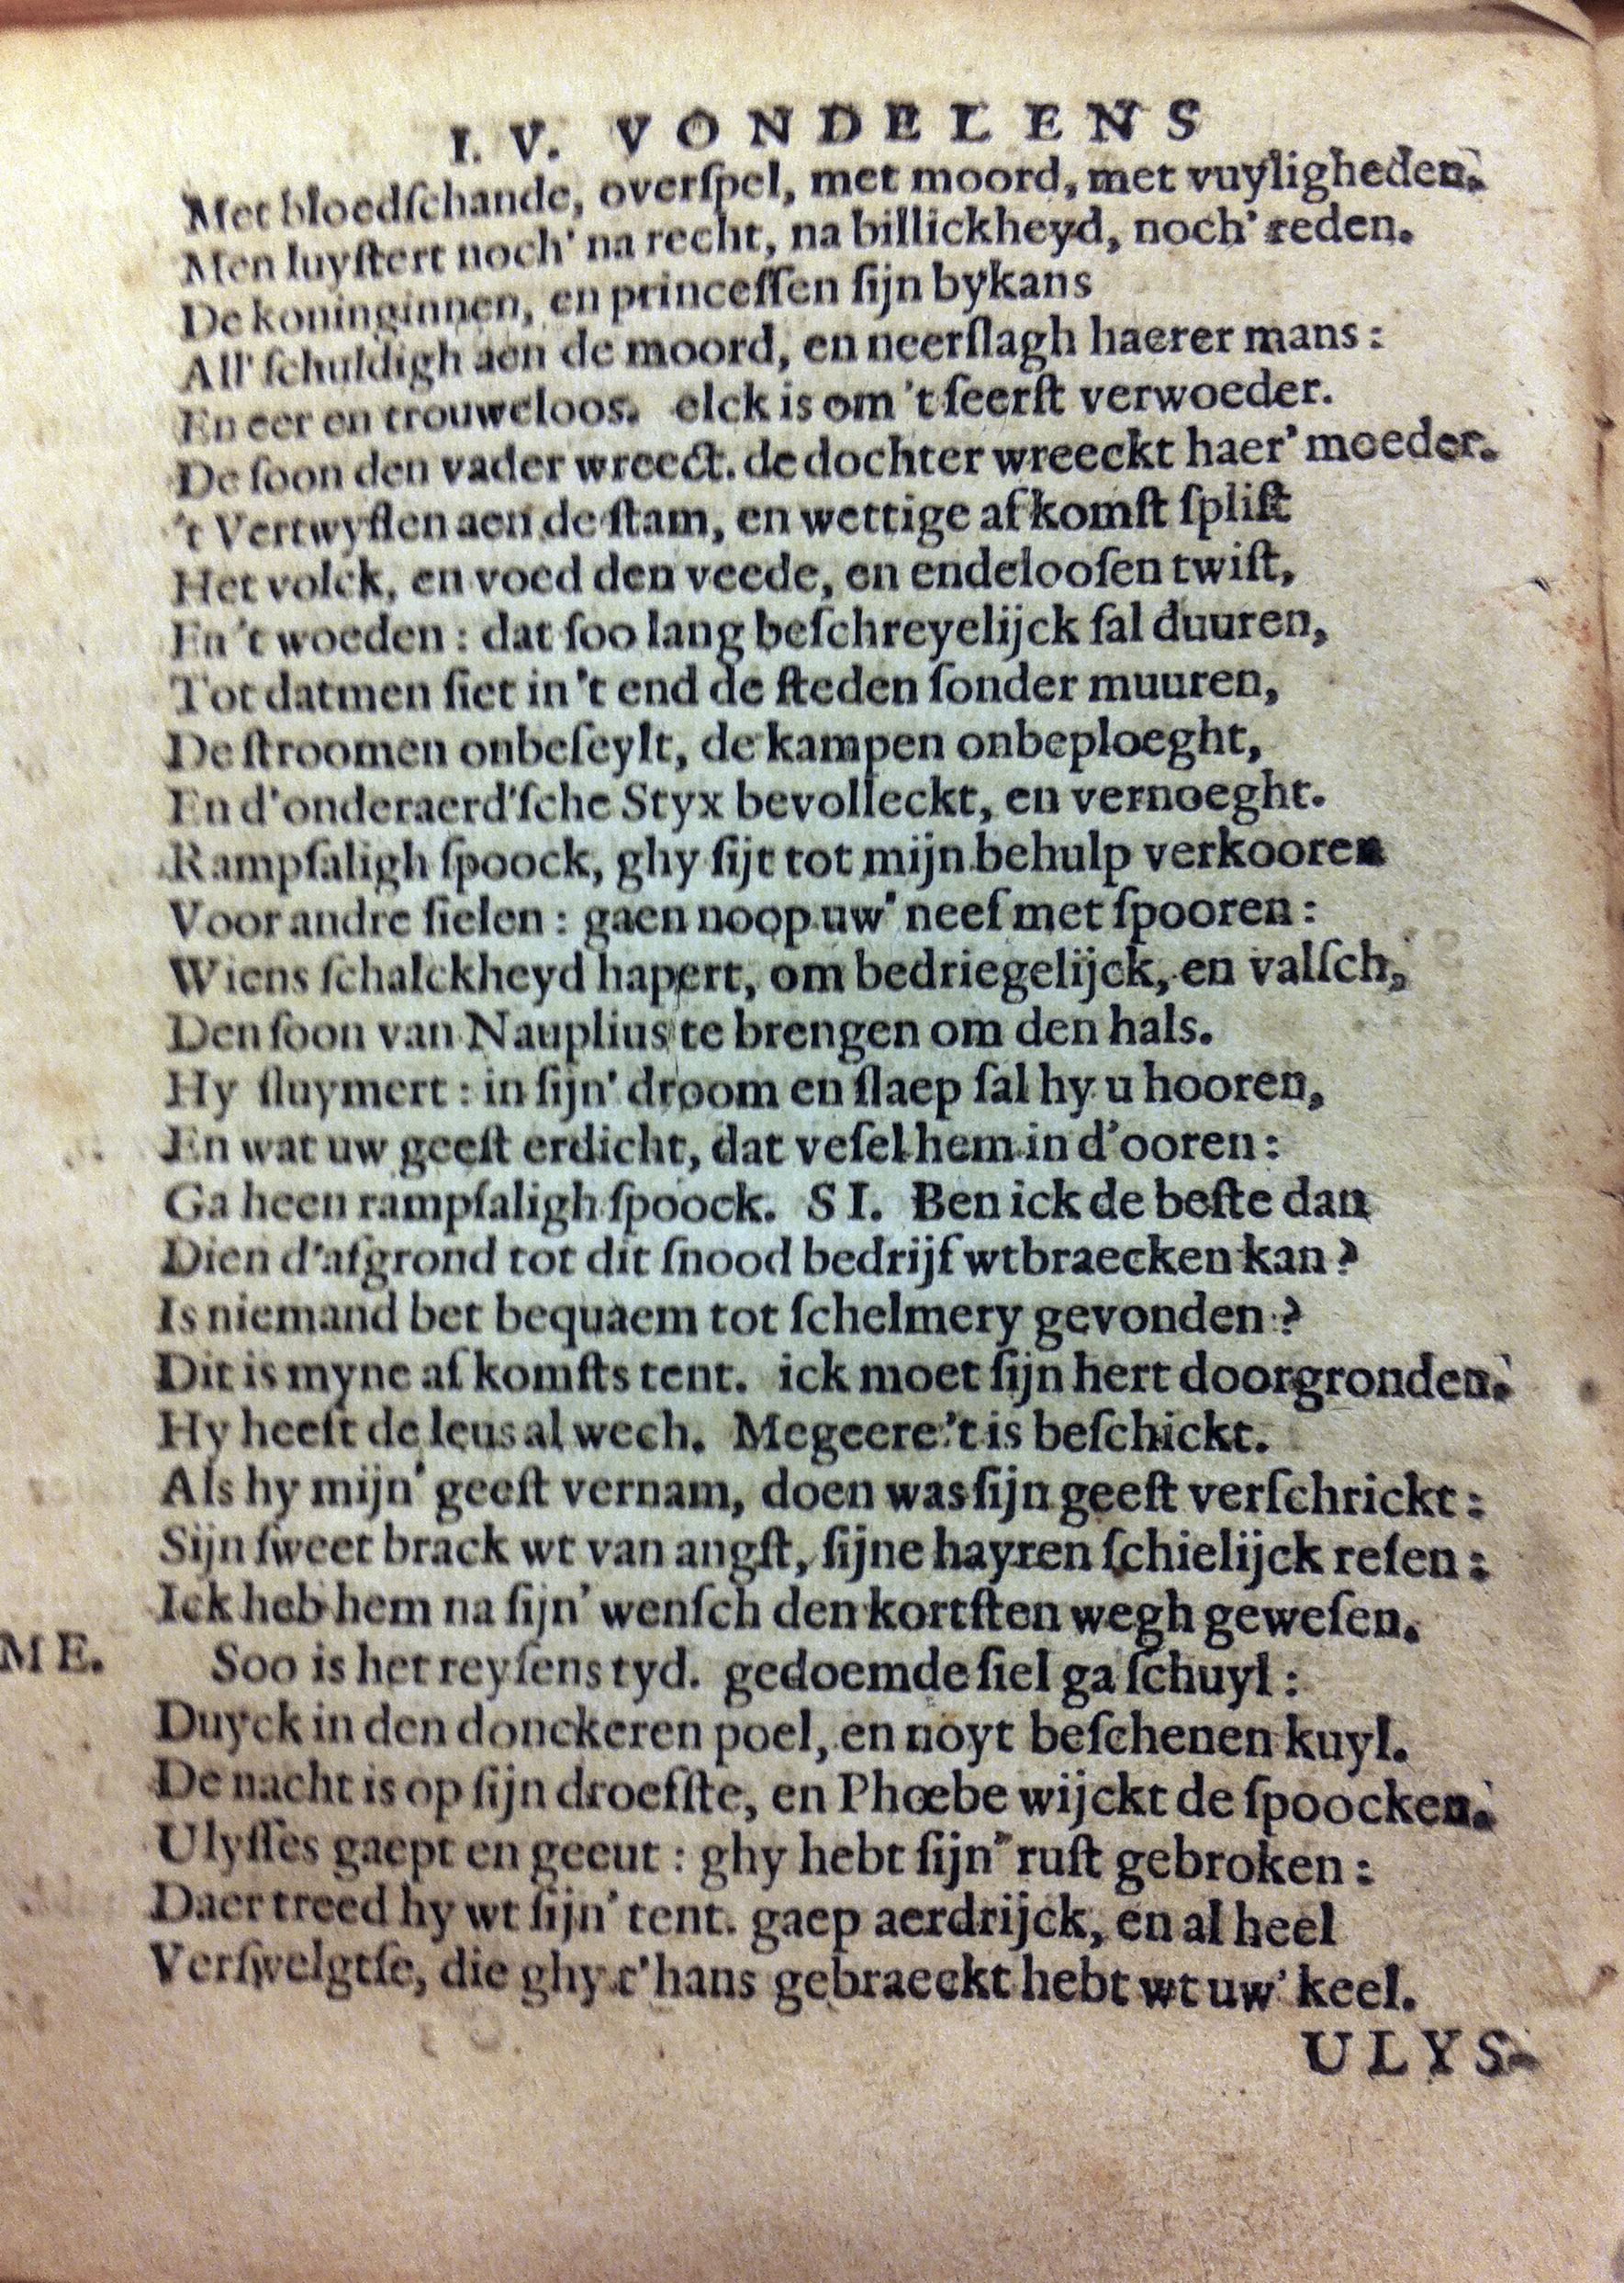 I. V. VONDELENS
Met bloedſchande, overſpel, met moord, met vuyligheden.
Men luyſtert noch' na recht, na billickheyd, noch' reden.
De koninginnen, en princeſſen ſijn bykans
All' ſchuldigh aen de moord, en neerſlagh haerer mans:
En eer en trouweloos. elck is om 't ſeerſt verwoeder.
De ſoon den vader wreect. de dochter wreeckt haer' moeder.
't Vertwyflen aen de ſtam, en wettige afkomſt ſpliſt
Het volck, en voed den veede, en endelooſen twiſt,
En 't woeden: dat ſoo lang beſchreyelijck ſal duuren,
Tot datmen ſiet in 't end de ſteden ſonder muuren,
De ſtroomen onbeſeylt, de kampen onbeploeght,
En d'onderaerd'ſche Styx bevolleckt, en vernoeght.
Rampſaligh ſpoock, ghy ſijt tot mijn behulp verkooren
Voor andre ſielen: gaen noop uw' neef met ſpooren:
Wiens ſchalckheyd hapert, om bedriegelijck, en valſch,
Den ſoon van Nauplius te brengen om den hals.
Hy ſluymert: in ſijn' droom en ſlaep ſal hy u hooren,
En wat uw geeſt erdicht, dat veſel hem in d'ooren:
Ga heen rampſaligh ſpoock. SI. Ben ick de beſte dan
Dien d'afgrond tot dit ſnood bedrijf wtbraecken kan?
Is niemand bet bequaem tot ſchelmery gevonden?
Dit is myne afkomſts tent. ick moet ſijn hert doorgronden.
Hy heeft de leus al wech. Megeere 't is beſchickt.
Als hy mijn' geeſt vernam, doen was ſijn geeſt verſchrickt:
Sijn ſweet brack wt van angſt, ſijne hayren ſchielijck reſen:
Ick heb hem na ſijn' wenſch den kortſten wegh geweſen.
ME. Soo is het reyſens tyd. gedoemde ſiel ga ſchuyl:
Duyck in den donckeren poel, en noyt beſchenen kuyl.
De nacht is op ſijn droefſte, en Phœbe wijckt de ſpoocken.
Ulyſſes gaept en geeut: ghy hebt ſijn' ruſt gebroken:
Daer treed hy wt ſijn' tent. gaep aerdrijck, en al heel
Verſwelgtſe, die ghy t'hans gebraeckt hebt wt uw' keel.
ULYS-